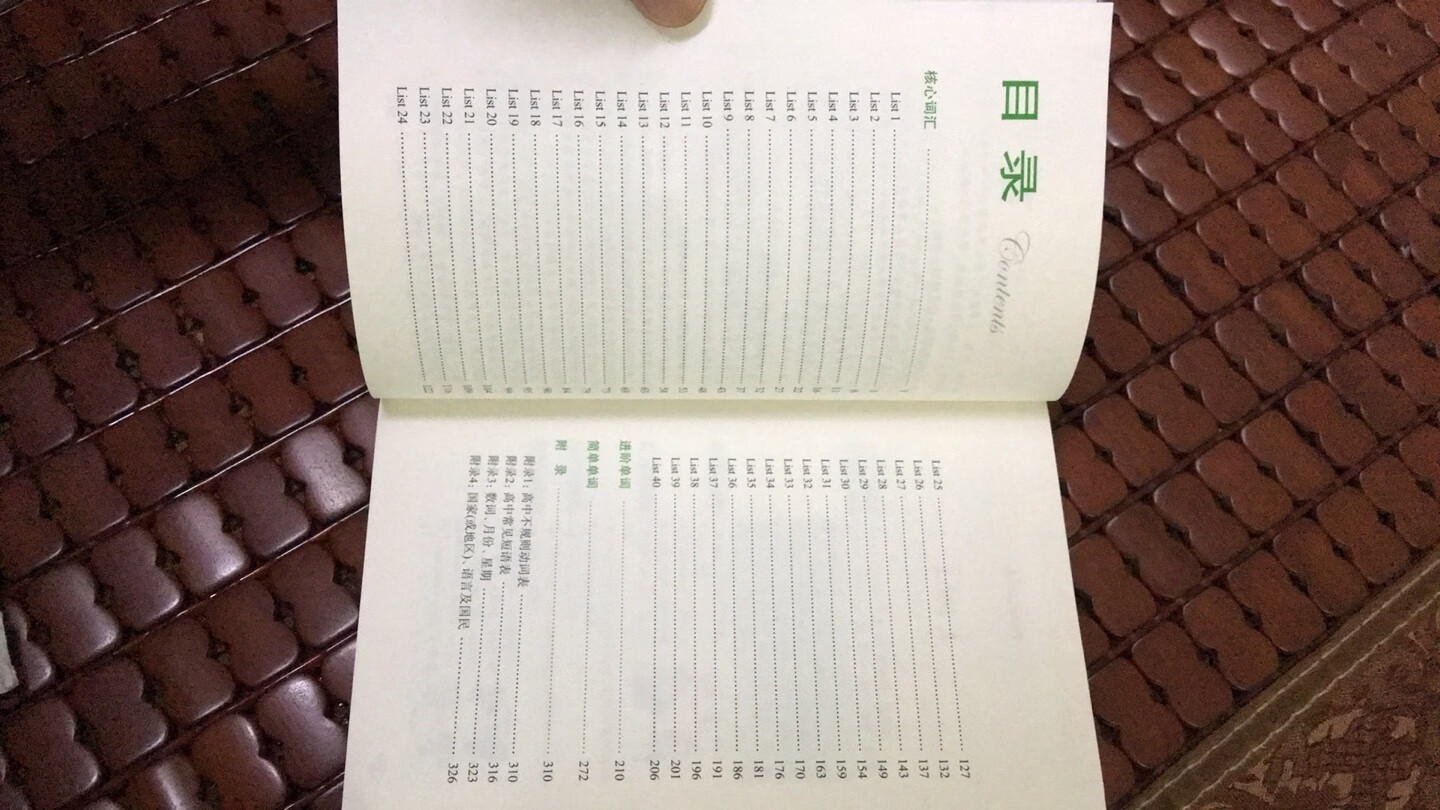 目 录 Contents
核心词汇 1
List 1 1
List 2 6
List 3 11
List 4 16
List 5 22
List 6 27
List 7 32
List 8 37
List 9 43
List 10 48
List 11 53
List 12 58
List 13
List 14
List 15
List 16
List 17 84
List 18 90
List 19 95
List 20 99
List 21 104
List 22 109
List 23
List 24 122
List 25 127
List 26 132
List 27 137
List 28 143
List 29 149
List 30 154
List 31 159
List 32 163
List 33 170
List 34 176
List 35 181
List 36 186
List 37 191
List 38 196
List 39 201
List 40 206
进阶单词 210
简单单词 272
附 录 310
附录1：高中不规则动词表 310
附录2：高中常见短语表 316
附录3：数词、月份、星期 323
附录4：国家(或地区)、语言及国民 326